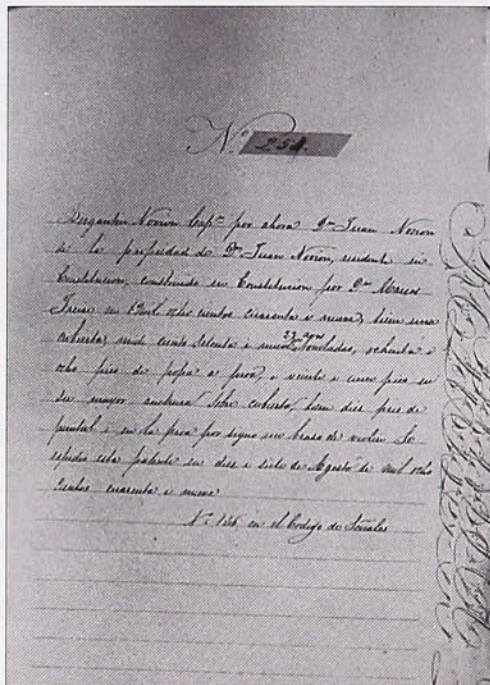 Nº 254.
Bergantin Norion Capn por ahora Dn Juan Norion
de la propiedad de Dn Juan Norion, residente en
Constitucion, construido en Constitucion por Dn Marcos
en Mil ocho cientos cuarenta i nueve, tiene una
cubierta, mide ciento setenta i nueve 23 toneladas, ochenta i
ocho pies de popa a proa, i veinte i cinco pies en
su mayor anchura sobre cubierta, tiene diez pies de
puntal i en la proa por signo un brazo de violin. Se
espidió esta patente en diez i siete de Agosto de mil ocho
cientos cuarenta i nueve
Nº 156 en el Codigo de Señales